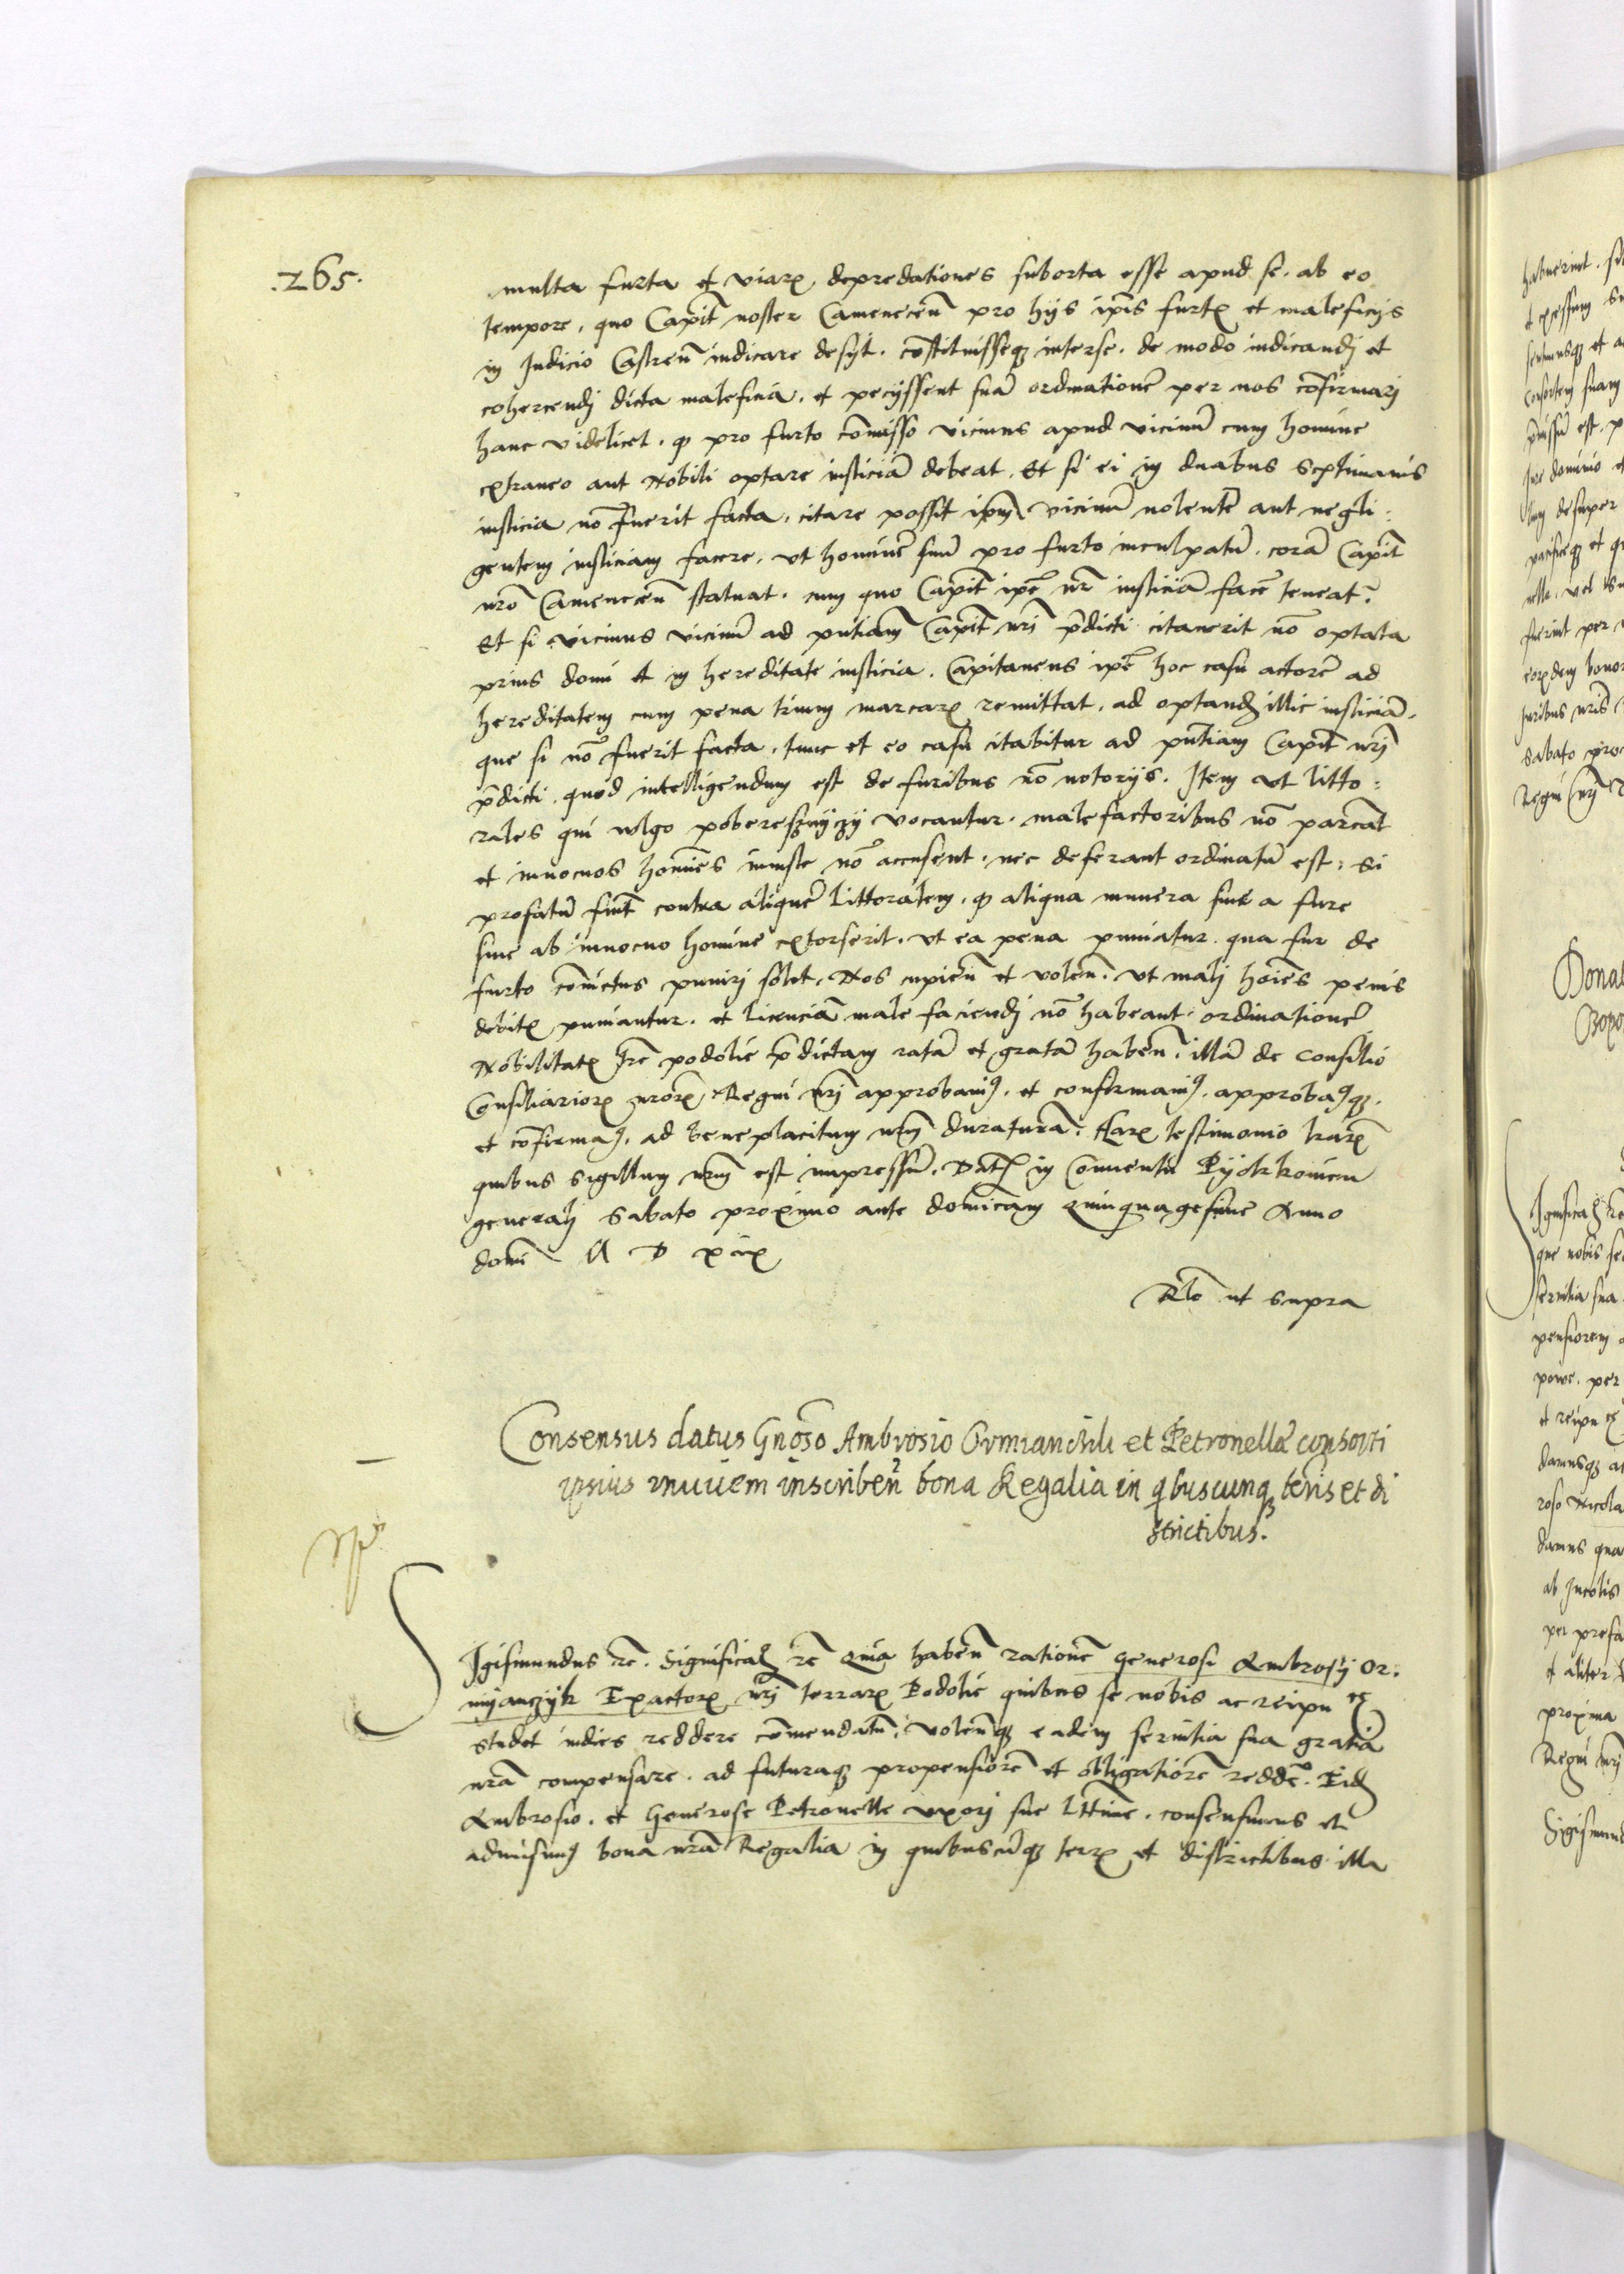 .265.
multa furta et viarꝝ depredationes suborta esse apud se. ab eo
tempore, quo Capitꝰ noster Camenecen̄ pro hijs ip̄is furtꝭ et maleficijs
in Judicio Castren̄ iudicare desijt. cōstituisseqꝫ interse. de modo iudicandj et
cohercendj dicta maleficia. et pecijssent suā ordinationē per nos cōfirmarj
hanc videlicet. ꝙ pro furto cōmisso vicinus apud vicinū cum homine
extraneo aut Nobili optare iusticiā debeat. Et si ei in duabus septimanis
iusticia nō fuerit facta, citare possit ipm̄ vicinū nolentē aut negli:
gentem iusticiam facere, vt hominē suū pro furto inculpatū, corā Capit̄
nr̄o Camenecen̄ statuat. cum quo Capit̄ ip̄e nr̄ iusticiā facē teneat̄.
Et si vicinus vicinū ad pn̄tiam Capit̄ nrj p̄dicti citauerit nō optata
prius domi et in hereditate iusticia. Capitaneus ip̄e hoc casu actorē ad
hereditatem cum pena trium marcarꝝ remittat, ad optandꝫ illic iusticiā.
que si nō fuerit facta, tunc et eo casu citabitur ad pn̄tiam Capit̄ nrj
p̄dicti. quod intelligendum est de furibus nō notorijs. Item vt litto:
rales qui wlgo poberesznyczy vocantur. malefactoribus nō parcāt
et innocuos homīes iniuste nō accusent. nec deferant ordinatū est. Si
profatū fuit̄ contra aliquē littoralem, ꝙ aliqua munera siue a fure
siue ab innocuo homine extorserit. vt ea pena puniatur. qua fur de
furto cōuictus punirj solet. Nos cupien̄ et volen̄. vt malj hoīes penis
debitꝭ puniantur. et licenciā male faciendj nō habeant. ordinationē
Nobilitatꝭ Tre podolie p̄dictam ratā et gratā haben̄. illā de Consilio
Consiliariorꝝ nr̄orꝝ Regni nrj approbauimꝰ. et confirmauimꝰ. approbamꝰqꝫ.
et cōfirmamꝰ. ad beneplacitum nrm̄ duraturā. Harꝝ testimonio lrarꝝ
quibus sigillum nrm̄ est impressū. Datꝭ in Conuentu Pyotrkouien
generalj Sabato proximo ante dominicam quinquagesime Anno
domī M D xix
Rlo ut supra
Consensus datus Gnōso Ambrosio Ormianchik et Petronellæ consorti
ipsius inuicem inscriben̄ bona Regalia in qbuscunqꝫ terris et di
strictibus.
Sigismundus rc̄. Significamꝰ rc̄ Quia haben̄ rationē generosi Ambrosij Or.
mijanczyk Exactorꝭ nrj terrarꝝ Podolie quibus se nobis ac reipu ce
studet indies reddere cōmendatū. volen̄qꝫ eadem seruitia sua gratiā
nrā compensare. ad futuraqꝫ propensiorē et obligatiorē reddē. Eidꝫ
Ambrosio. et Generose Petronelle vxorj sue lttime. consensimus et
admisimꝰ bona nrā Regalia in quibuscūqꝫ terrꝭ et districtibus illa